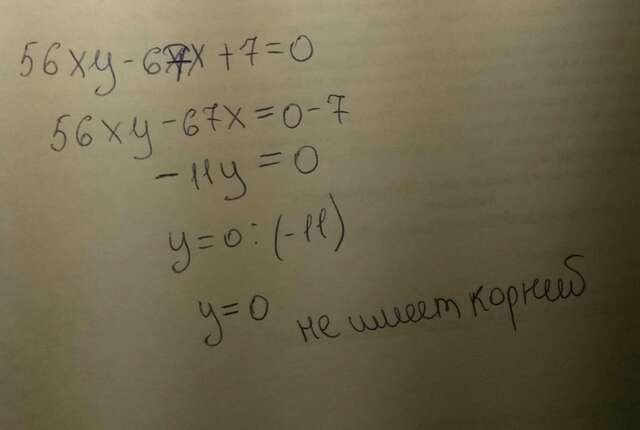 56xy - 67x + 7 = 0
56xy - 67x = 0 - 7
- 11y = 0
y = 0 : (-11)
y = 0 не имеет корней